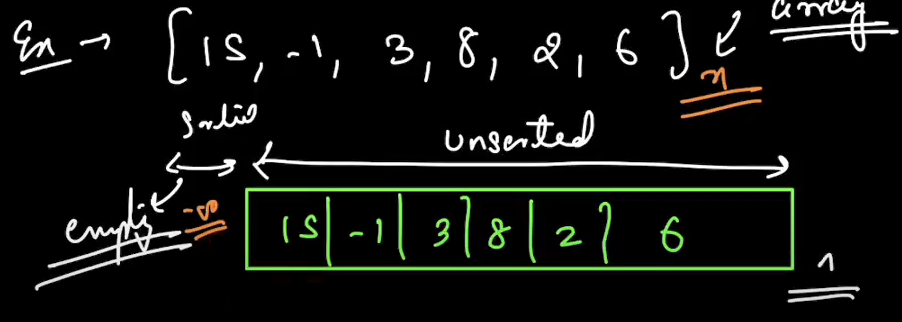 Ex → [15, -1, 3, 8, 2, 6] array
n
sorted unsorted
empty -∞ 15 | -1 | 3 | 8 | 2 | 6
1